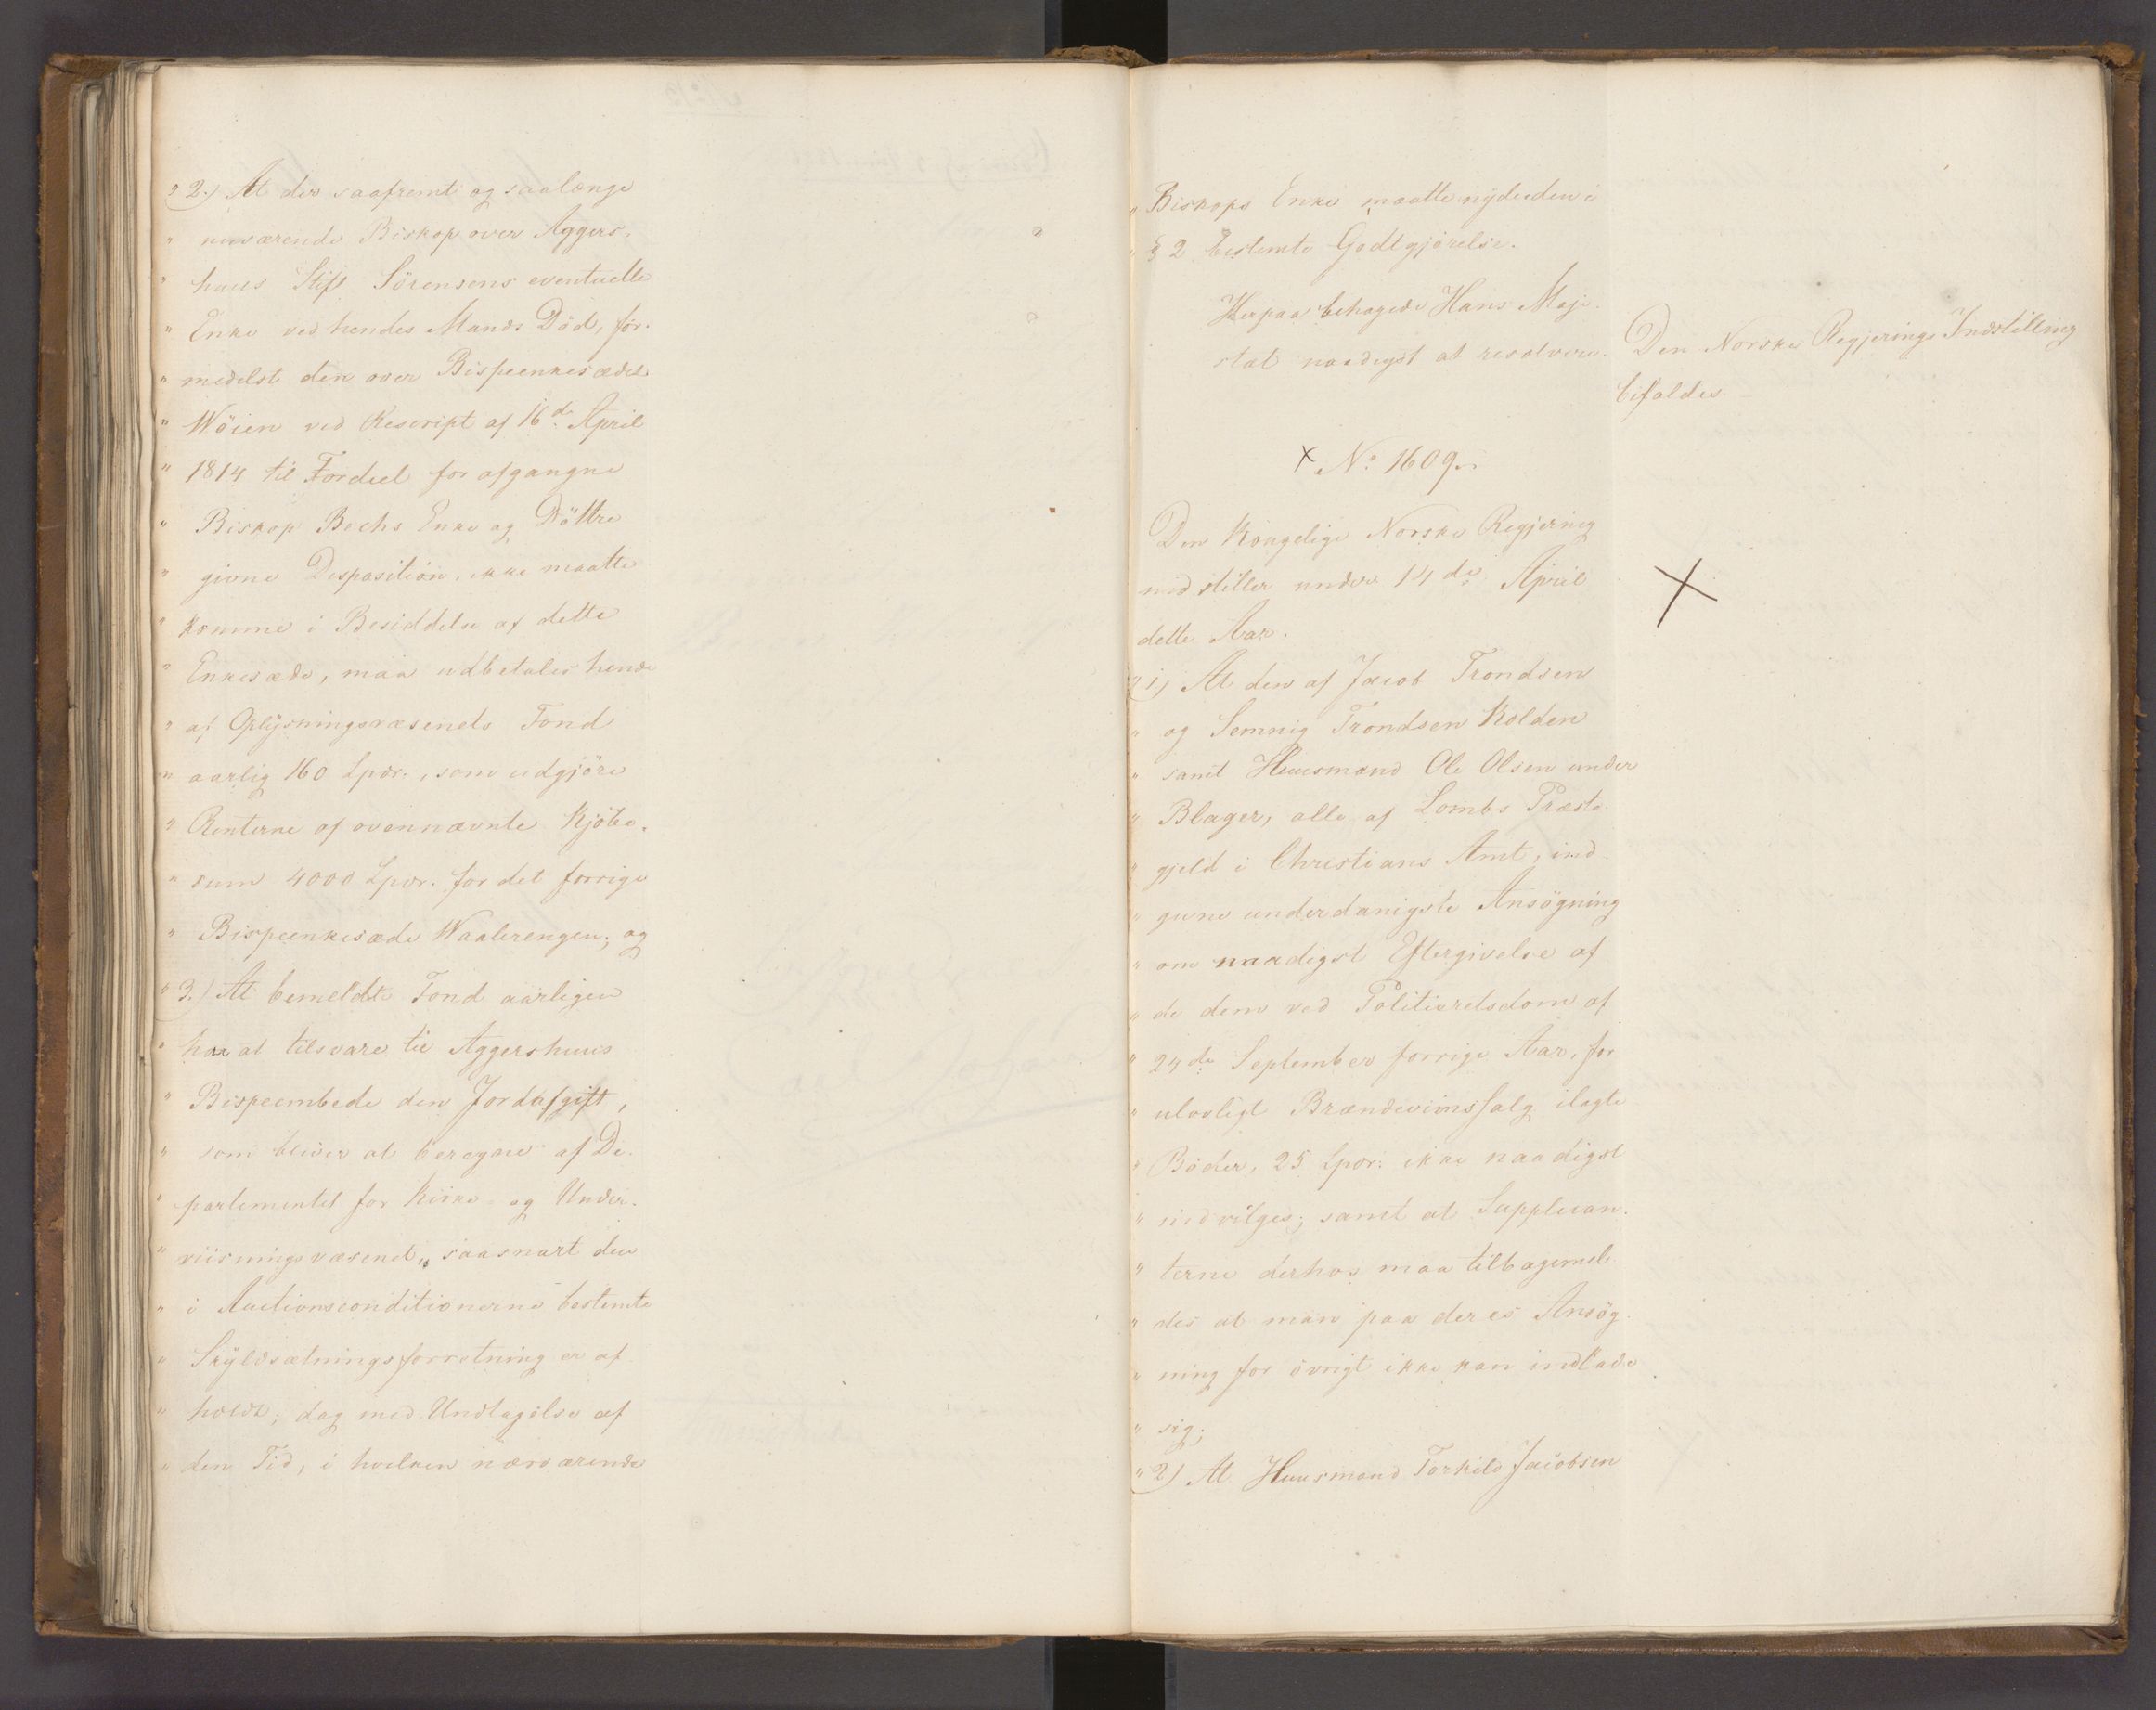 „2.) At der saafremt og saalænge
„ nuværende Biskop over Aggers-
„ huus Stift Sörensens eventuelle
„ Enke ved hendes Mands Död, för-
„ medelst den over Bispeenkesædet
„ Wöien ved Rescript af 16de April
„ 1814 til Fordeel for afgangne
„ Biskop Bechs Enke og Döttre
„ givne Disposition, ikke maatte
„ komme i Besiddelse af dette
„ Enkesæde, maa udbetales hende
„ af Oplysningsvæsenets Fond
„ aarlig 160 Spdr., som udgjöre
„ Renterne af ovennævnte Kjöbe-
„ sum 4000 Spdr. for det forrige
„ Bispeenkesæde Waalerengen; og
„3.) At bemeldte Fond aarligen
„ har at tilsvare til Aggershuus
„ Bispeembede den Jordafgift,
„ som bliver at beregne af De-
„ partementet for Kirke- og Under-
„ viisningsvæsenet, saasnart den
„ i Auctionsconditionerne bestemte
„ Skyldsætningsforretning er af-
„ holdt; dog med Undtagelse af
„ den Tid, i hvilken nærværende
„ Biskops Enke maatte nyde den i
„ § 2 bestemte Godtgjörelse.
Herpaa behagede Hans Maje-
stæt naadigst at resolvere:
Den Norske Regjerings Indstilling
bifaldes
× No 1609.
Den Kongelige Norske Regjering
indstiller under 14de April
dette Aar.
„1) At den af Jacob Trondsen
„ og Semnig Trondsen Kolden
„ samt Huusmand Ole Olsen under
„ Blager, alle af Lombs Præste-
„ gjeld i Christians Amt, ind-
„ givne underdanigste Ansögning
„ om naadigst Eftergivelse af
„ de dem ved Politieretsdom af
„ 24de September forrige Aar, for
„ ulovligt Brændeviinssalg ilagte
„ Böder, 25 Spdr. ikke naadigst
„ indvilges; samt at Supplican-
„ terne derhos maa tilbagemel-
„ des at man paa deres Ansög-
„ ning for övrigt ikke kan indlade
„ sig;
„2) At Huusmand Torkild Jacobsen